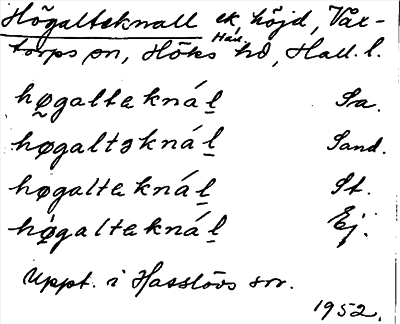 Högalteknall ek. höjd, Våx-
torps sn, Höks hd, Hall. l.
høgalteknál Sa.
høgaltəknál Sand.
høgalteknál St.
høgalteknál Ej.
Uppt. i Hasslövs sn.
1952.